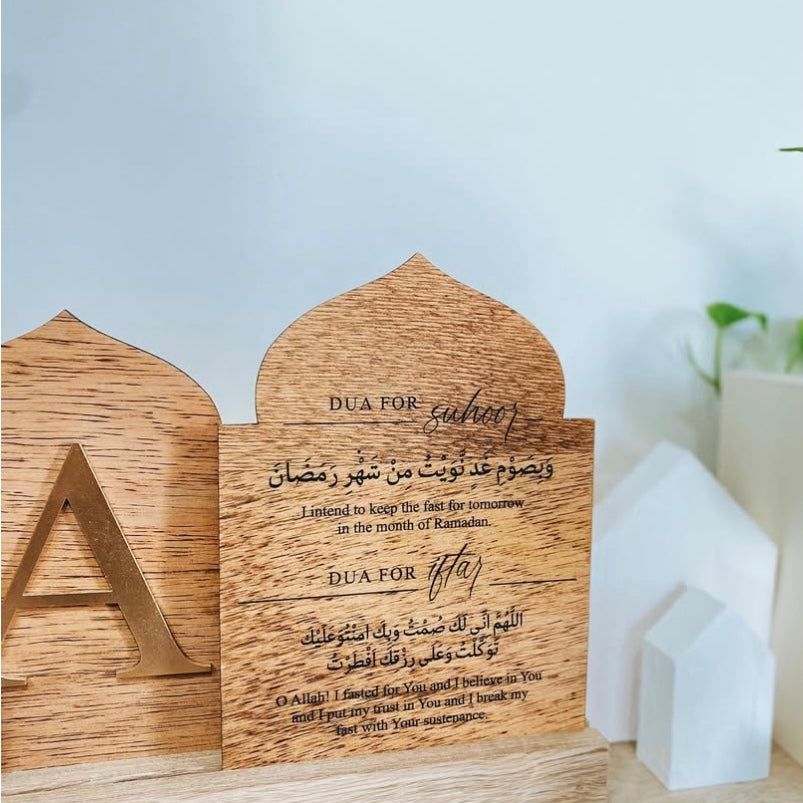 A
DUA FOR suhoor
وَبِصَوْمِ غَدٍ نَّوَيْتُ مِنْ شَهْرِ رَمَضَانَ
I intend to keep the fast for tomorrow
in the month of Ramadan.
DUA FOR iftar
اللَّهُمَّ اِنِّى لَكَ صُمْتُ وَبِكَ امَنْتُوَعَلَيْكَ
تَوَكَّلْتُ وَعَلَى رِزْقِكَ اَفْطَرْتُ
O Allah! I fasted for You and I believe in You
and I put my trust in You and I break my
fast with Your sustenance.